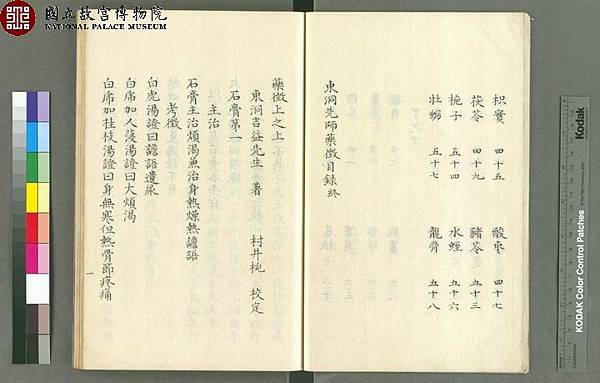 國立故宮博物院
NATIONAL PALACE MUSEUM
枳實 四十五 酸棗 四十七
茯苓 四十九 豬苓 五十三
梔子 五十四 水蛭 五十六
牡蠣 五十七 龍骨 五十八
東洞先師藥徵目録終
藥徵上之上
東洞吉益先生 著 村井杶 校定
石膏第一
主治
石膏主治煩渴兼治身熱燥熱譫語
考徵
白虎湯證曰譫語遺尿
白虎加人蓡湯證曰大煩渴
白虎加桂枝湯證曰身無寒但熱骨節疼痛
一
Kodak
KODAK Color Control Patches